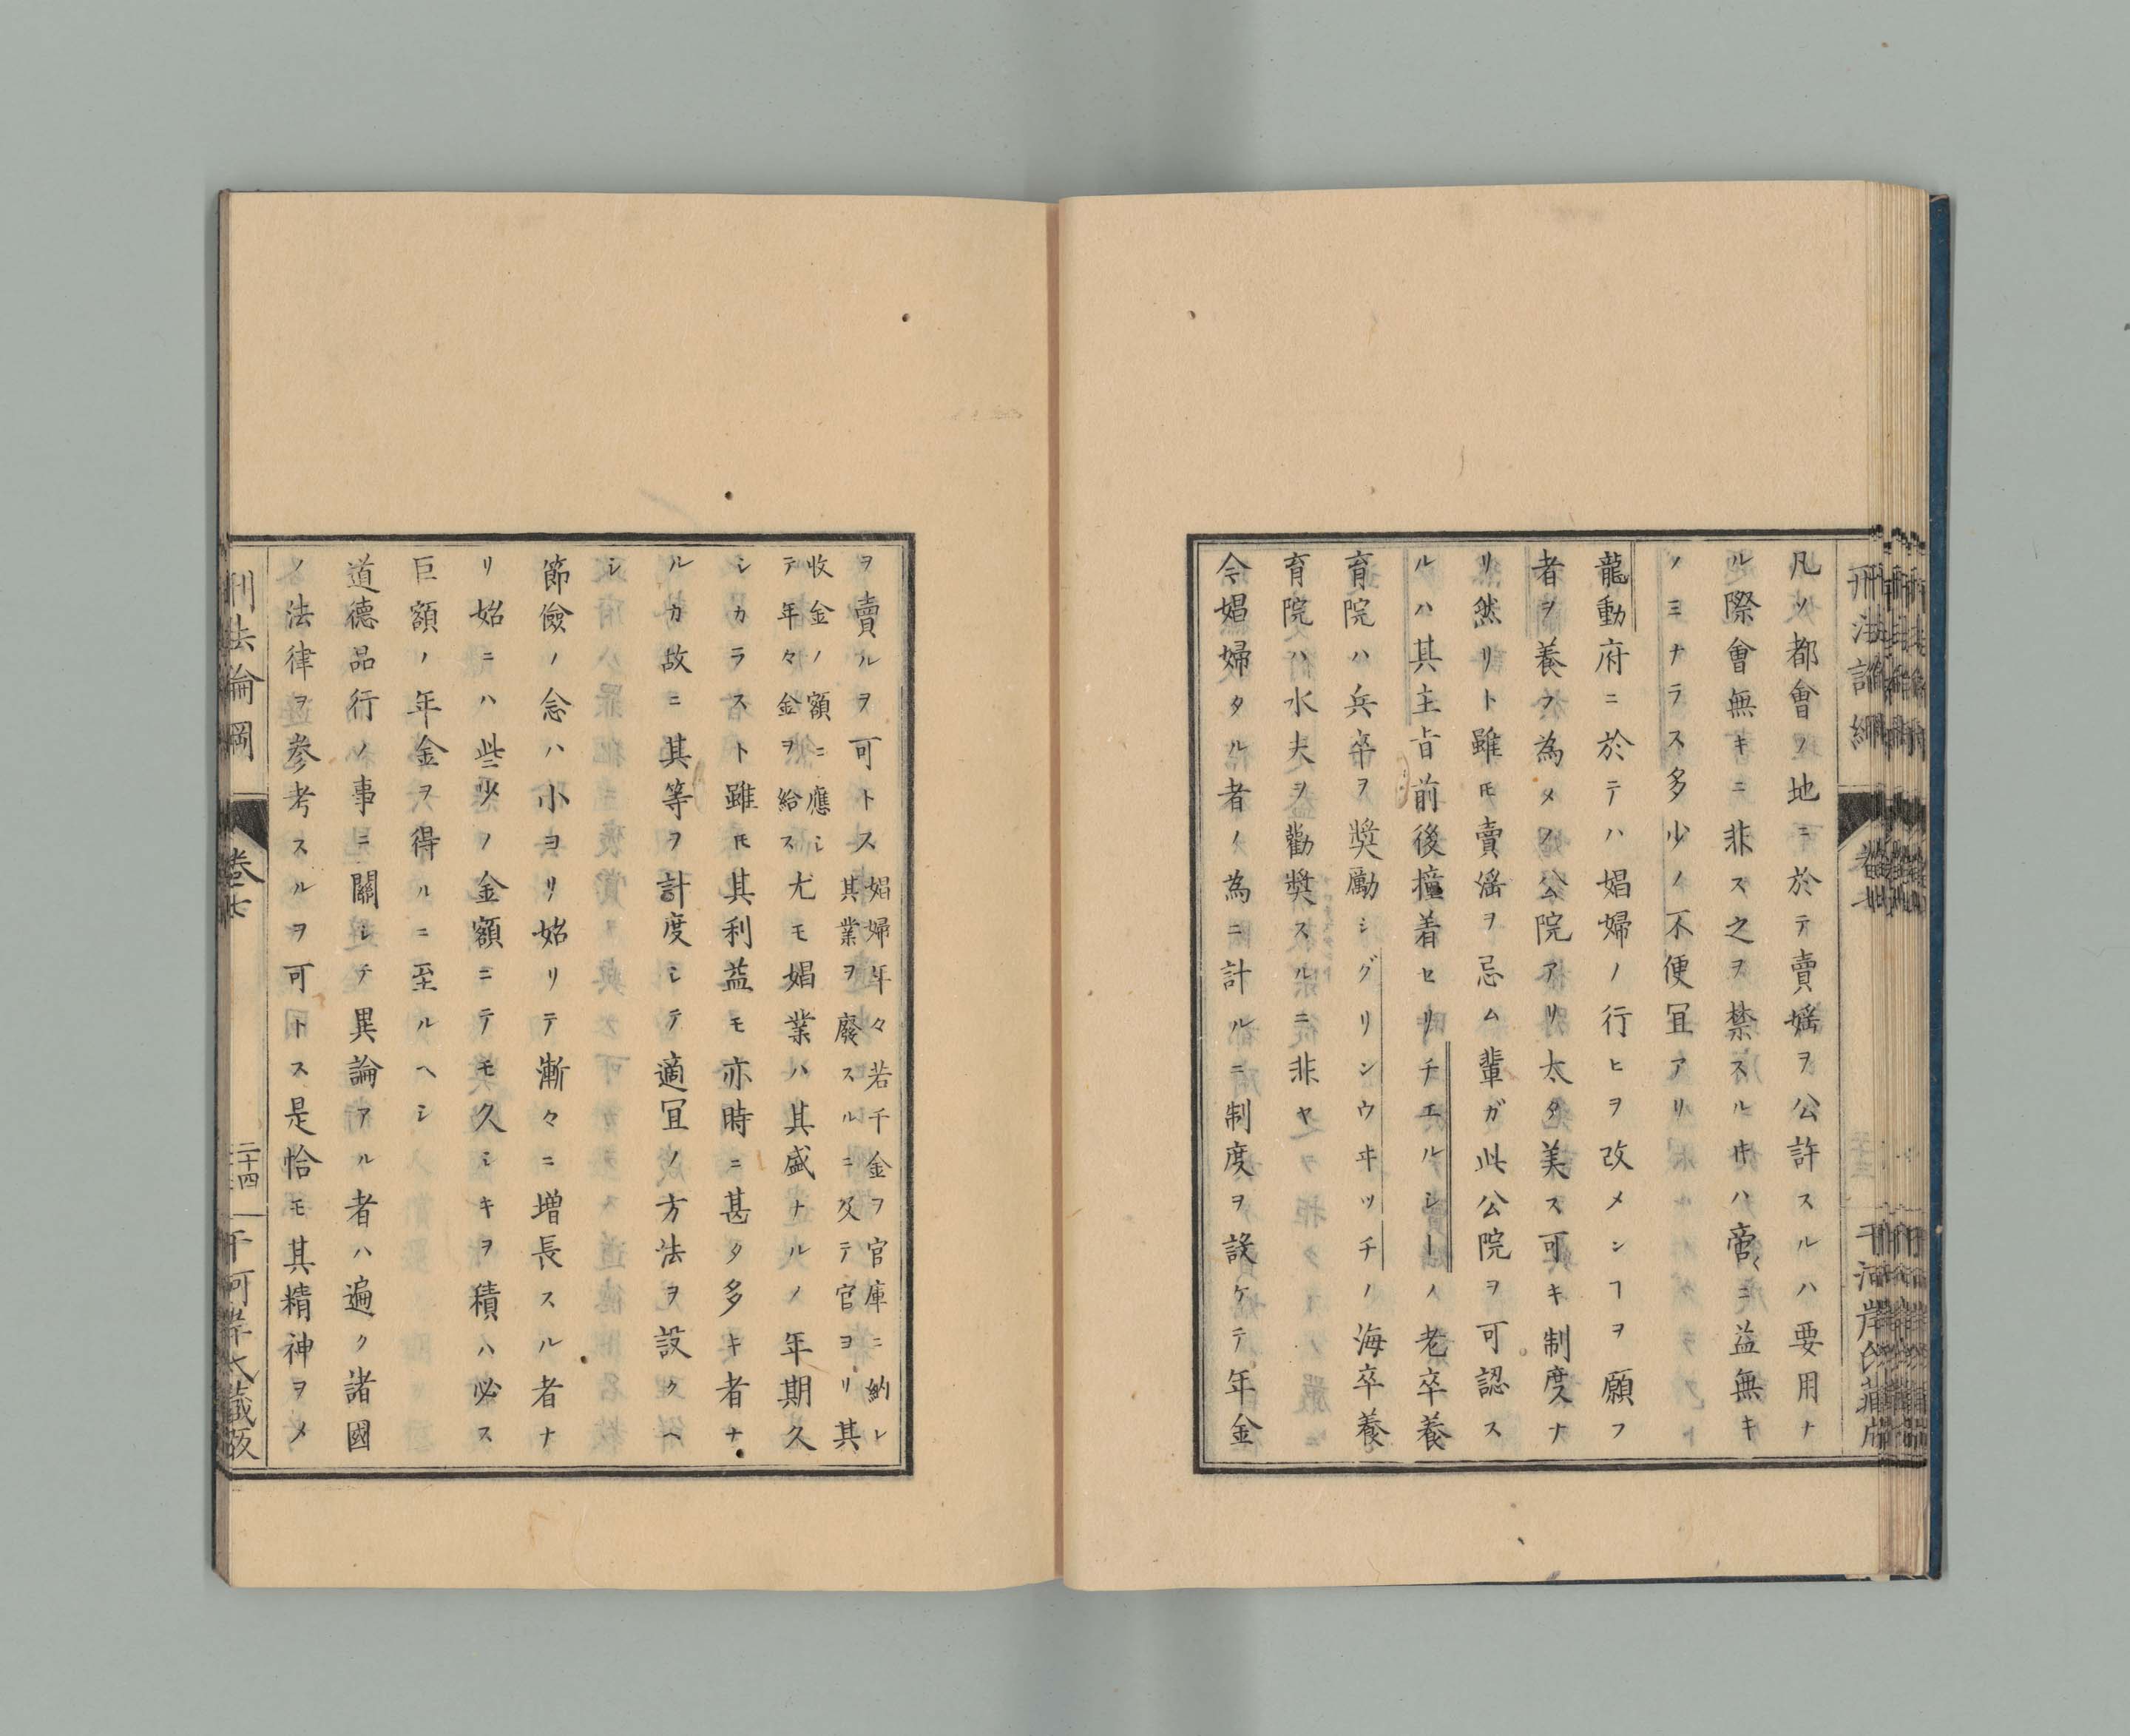 凡ソ都會ノ地ニ於テ賣婬ヲ公許スルハ要用ナ
ル際會無キニ非ス之ヲ禁スルヰハ啻ニ益無キ
ノミナラス多少ノ不便冝アリ
龍動府ニ於テハ娼婦ノ行ヒヲ改メンヿヲ願フ
者ヲ養フ為メノ公院アリ太タ美ス可キ制度ナ
リ然リト雖モ賣滛ヲ忌ム輩ガ此公院ヲ可認ス
ルハ其主旨前後撞着セリチエルシーノ老卒養
育院ハ兵卒ヲ奬勵シグリンウヰッチノ海卒養
育院ハ水夫ヲ勸奬スルニ非ヤ
今娼婦タル者ノ為ニ計ルニ制度ヲ設ケテ年金
ヲ賣ルヲ可トス娼婦年々若干金ヲ官庫ニ納レ
其業ヲ廢スルニ及テ官ヨリ其
收金ノ額ニ應シ
テ年々金ヲ給ス尤モ娼業ハ其盛ナルノ年期久
シカラスト雖モ其利益モ亦時ニ甚タ多キ者ナ
ルカ故ニ其等ヲ計度シテ適冝ノ方法ヲ設クヘ
シ
節儉ノ念ハ小ヨリ始リテ漸々ニ増長スル者ナ
リ始ニハ些少ノ金額ニテモ久シキヲ積ハ必ス
巨額ノ年金ヲ得ルニ至ルヘシ
道德品行ノ事ニ關シテ異論アル者ハ遍ク諸國
ノ法律ヲ參考スルヲ可トス是恰モ其精神ヲメ
刑法論綱
卷七
二十四
千河岸氏藏版